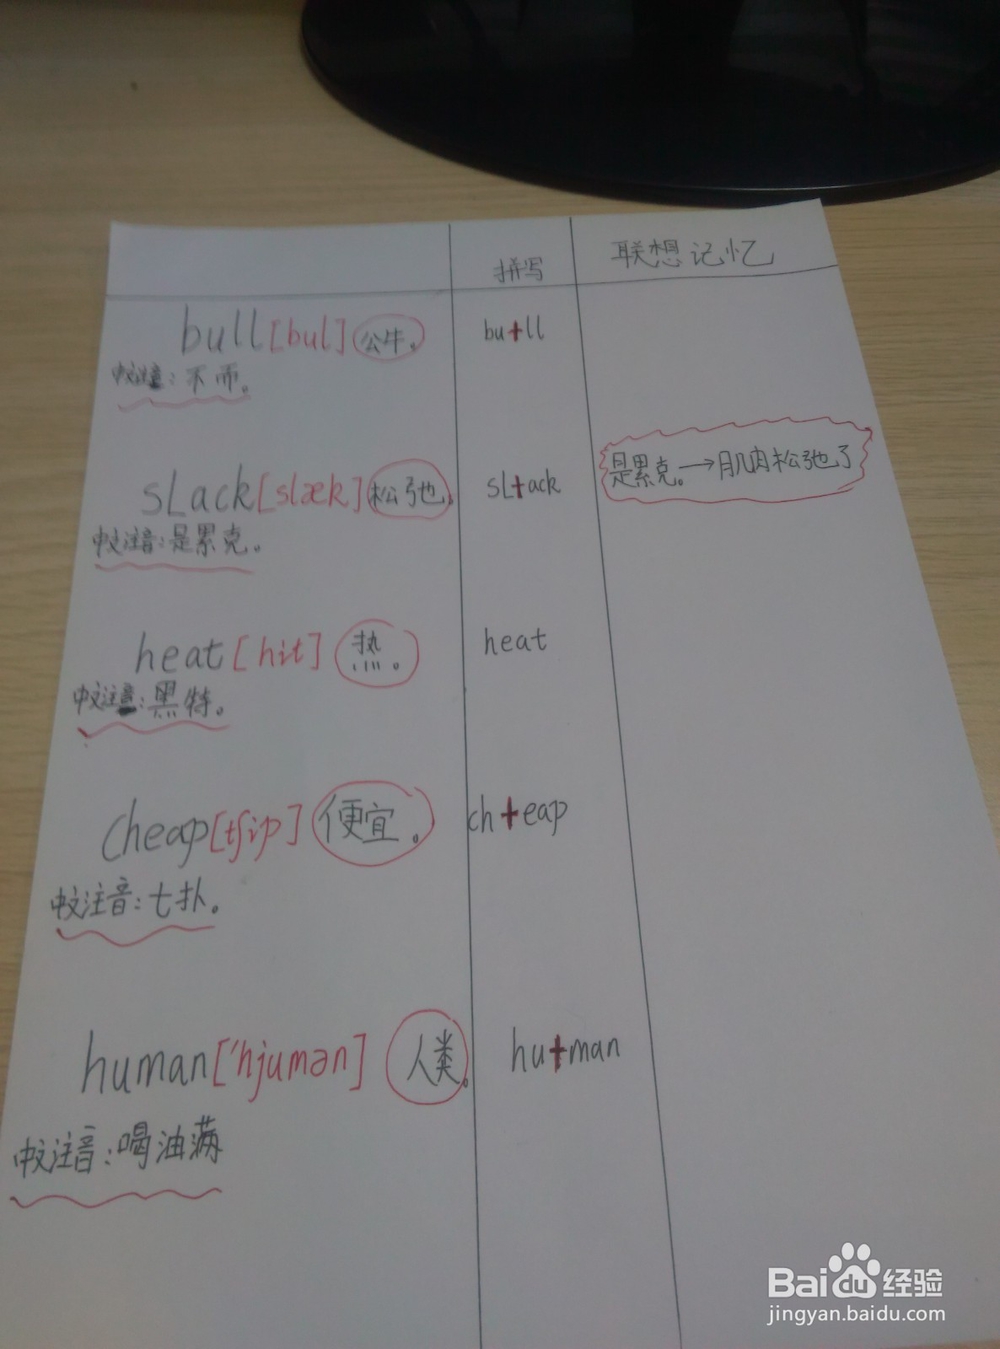 拼写 联想记忆
bull[bul] 公牛。 bu+ll
中文注音:不而。
sLack[slæk] 松弛。 sL+ack 是累克。→肌肉松弛了
中文注音:是累克。
heat[hit] 热。 heat
中文注音:黑特。
cheap[tʃip] 便宜。 ch+eap
中文注音:七扑。
human['hjumən] 人类。 hu+man
中文注音:喝油满
Baidu经验
jingyan.baidu.com